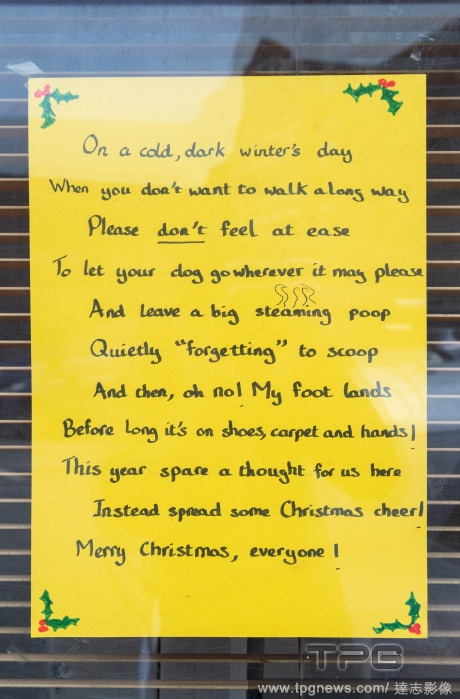 On a cold, dark winter's day
When you don't want to walk a long way
Please don't feel at ease
To let your dog go wherever it may please
And leave a big steaming poop
Quietly "forgetting" to scoop
And then, oh no! My foot lands
Before long it's on shoes, carpet and hands!
This year spare a thought for us here
Instead spread some Christmas cheer!
Merry Christmas, everyone!
TPG
www.tpgnews.com/ 達志影像